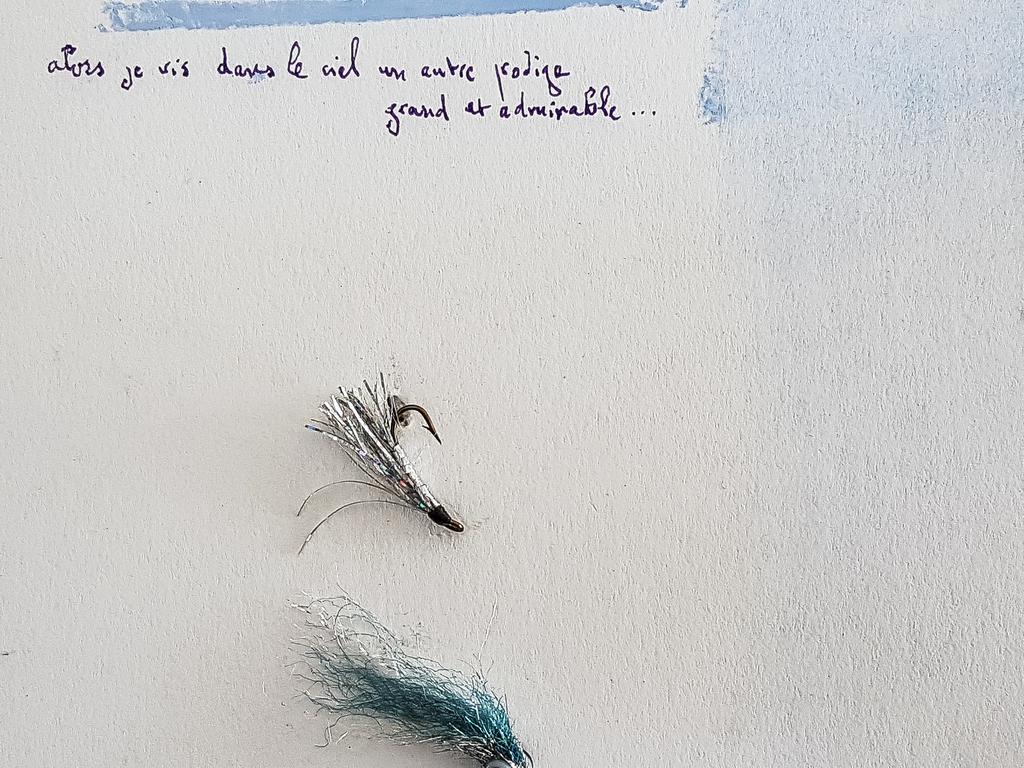 alors je vis dans le ciel un autre prodige
grand et admirable...